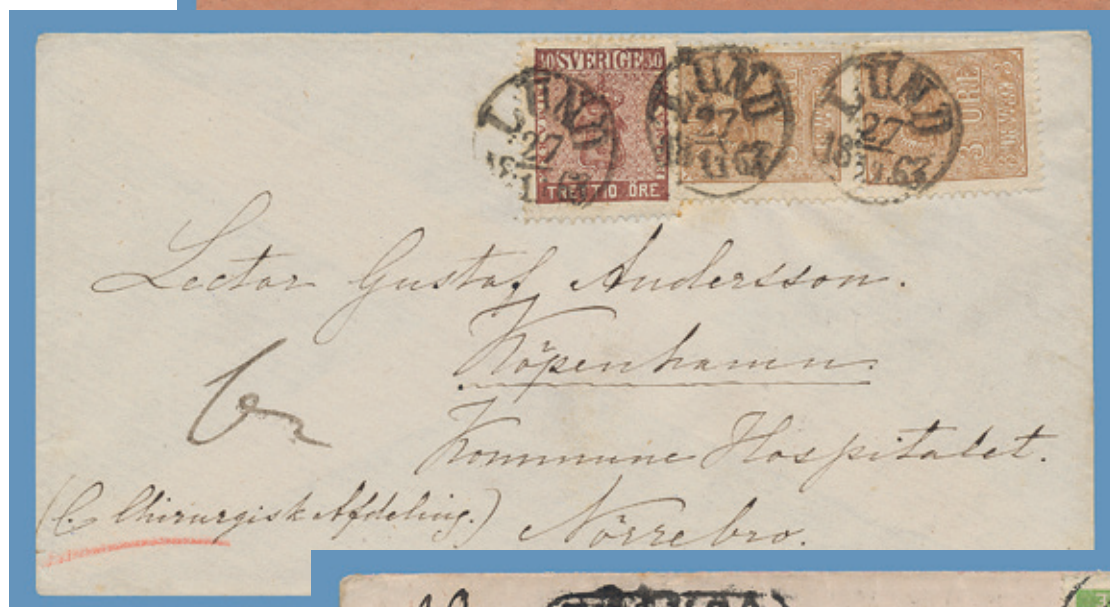 30 SVERIGE 30
TRETTIO ÖRE
LUND
27
1863
LUND
27
11
1863
LUND
27
1863
3 ÖRE
3 ÖRE
Lector Gustaf Andersson.
Köpenhamn.
Kommune Hospitalet.
(C. Chirurgisk Afdeling.) Nörrebro.